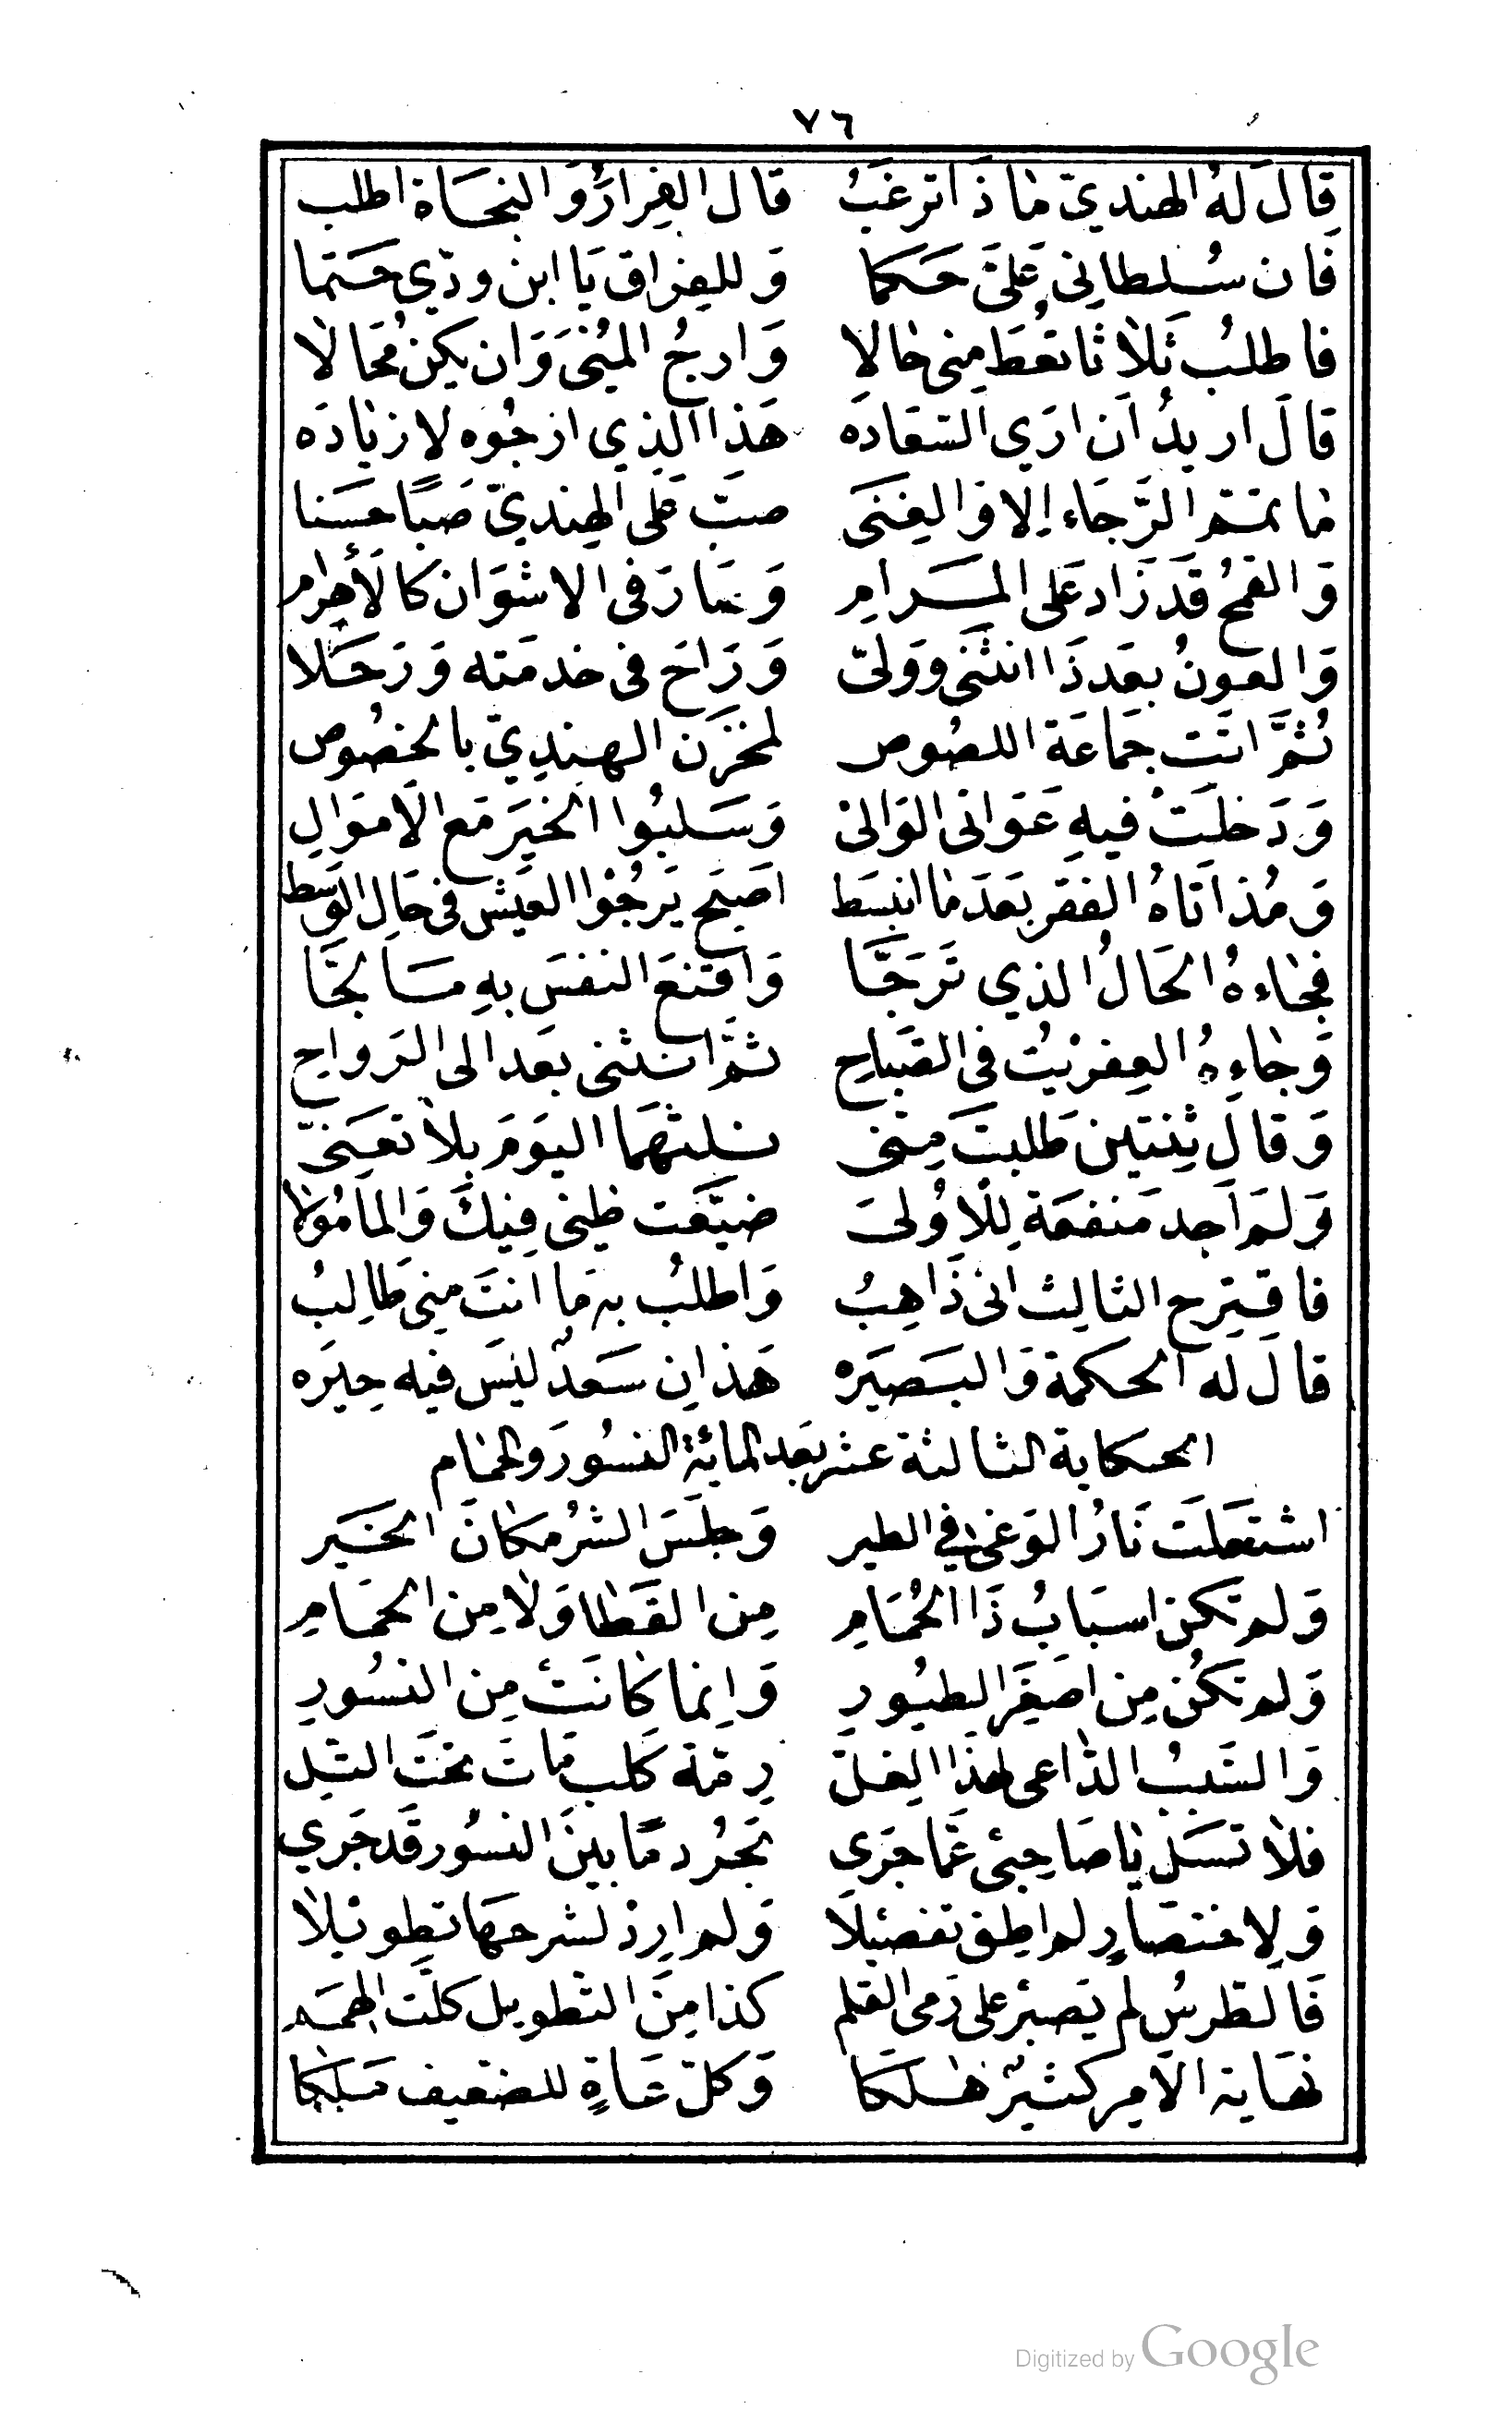 ٧٦
قَالَ لَهُ الهندىّ مَا ذَا ترغَبُ قال الفِرَارُ وَ النجَاة اطلب
فَان سُلطانِى عَلىَّ حَكما وَ للفراق يَا ابن ودّي حَتما
فاطلبُ ثَلاثا تعُطَ مِنى حَالا وَ ارجُ المُنىَ وَ ان يكن مُحَالا
قَالَ اريدُ اَن ارَي السّعَادَه هَذا الذِي ارجُوه لا زيَادَه
مَا تمّ الرَّجَاء اِلا وَ الغِنىَ صبّ عَلى الهِنديّ صَبًا حسَنا
وَ القمحُ قَد زَاد عَلى المَرامِ وَ صَارَ فى الاشوَان كالأَهرام
وَ العونُ بعَد ذَا انثنَى وَولىّ وَ رَاحَ فى خدمَته وَ رَحَلا
ثُمَّ اتَت جمَاعَة اللصُوص لمخزَن الهندِيّ بالخصُوص
وَ دَخلَتْ فيهِ عَوَانى الوَالىْ وَسَلبُوا الخيَرَ مَع الاَموَالِ
وَ مُذ اَتاهُ الفقر بَعَدَ مَا انبسَط اصَبَح يَرجُوْا العَيْش فى حَالِ الوَسَط
فجَاءهُ الحَالُ الذي تَرَجَّا وَ اقتنعَ النفسَ بهِ مَا لجَّا
وَجَاءهُ العِفرْيتُ فِى الصَبَاحِ ثمَّ انثنى بعَد الى الرَواحِ
وَ قالَ ثِنتين طَلبتَ مِنى نلتهَمَا اليَومَ بِلا تعَنىّ
وَ لمَ اَجد مَنفعَة لِلاُولىَ ضيّعَت ظنى فِيكَ وَالمأمُولا
فاقترح الثالث انى ذَاهِبُ وَ اطلبُ به مَا انتَ مِنى طَالِبُ
قالَ لهَ الحكمة وَ البَصيَره هَذاِن سَعدٌ ليَس فيه حِيَره
الحكاية الثالثة عشر بعَد المائة النسُور وَالحمَام
اشتعَلَت نَارُ الوَغى في الطير وَ جلسَ الشرُ مكَانَ الخَير
وَ لم تكن اسبَابُ ذَا الحُمَامِ مِن القَطا وَلا مِن الحمَامِ
وَ لم تكُن مِن اصغَرِ الطيُورِ وَ اِنما كانَتْ مِن النسُورِ
وَ السَببُ الدَّاعى لهَذا الغلّ رِمّة كَلب مَاتَ تحَتَ التل
فلا تسَل يَا صَاحِبىْ عَمّا جَرَى بحرُ دمًا بينَ النسُور قَد جَري
وَ لاِختصَارٍ لم اطِق تفصْيلاَ وَ لم ارِدْ لشرحهَا تطِويْلا
فَالطرسُ لم يَصبْر على رَمى القلم كذا مِنَ التطويل كلَّت الهِمَم
نهَاية الاَمرِ كثيْرٌ هَلكا وَ كلّ عَاةٍ للضعَيف مَلكا